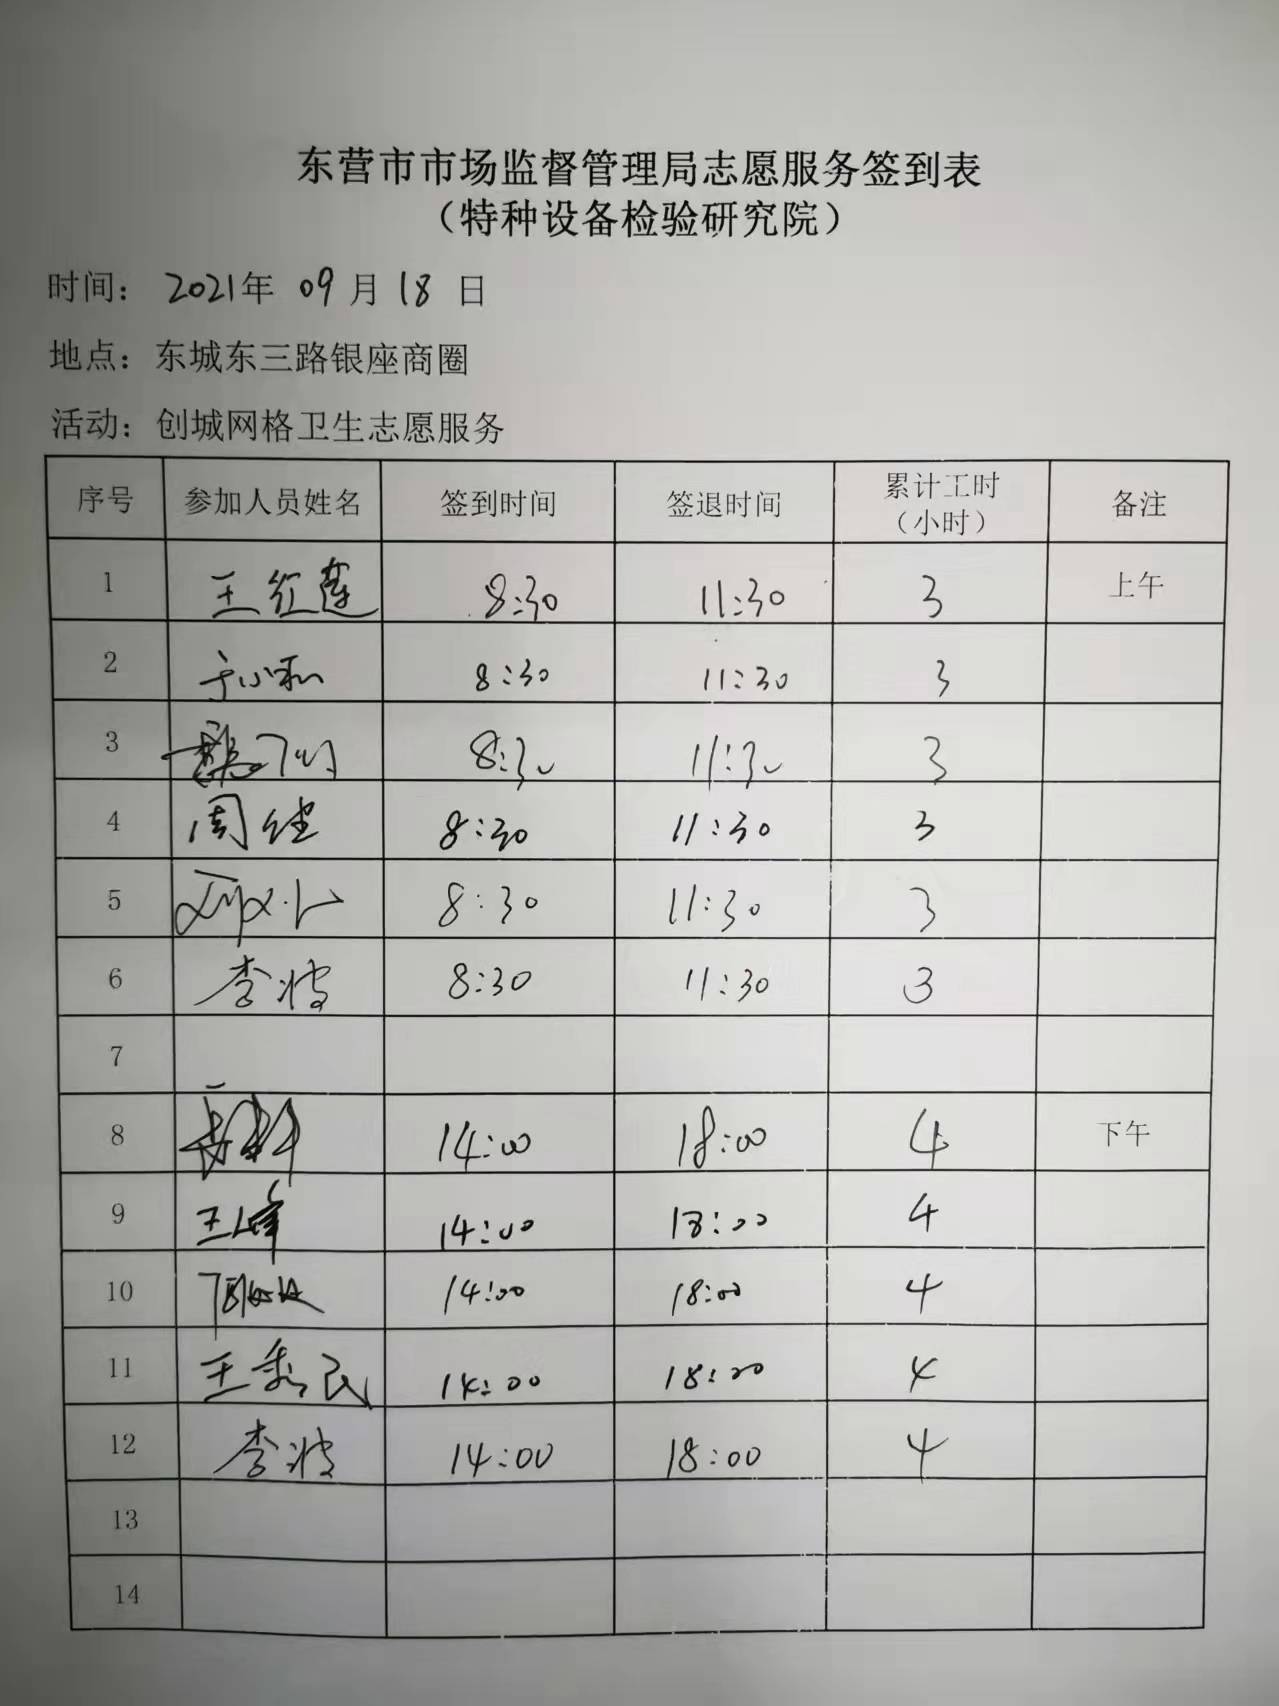 东营市市场监督管理局志愿服务签到表
（特种设备检验研究院）
时间： 2021年 09月 18 日
地点：东城东三路银座商圈
活动：创城网格卫生志愿服务
序号 参加人员姓名 签到时间 签退时间 累计工时（小时） 备注
1 王红莲 8:30 11:30 3 上午
2 于小和 8:30 11:30 3
3 8:30 11:30 3
4 周健 8:30 11:30 3
5 8:30 11:30 3
6 李波 8:30 11:30 3
7
8 14:00 18:00 4 下午
9 王峰 14:00 18:00 4
10 14:00 18:00 4
11 王秀民 14:00 18:00 4
12 李波 14:00 18:00 4
13
14